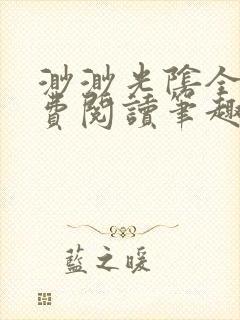 渺渺光陰全
費閱讀筆趣
藍之暖